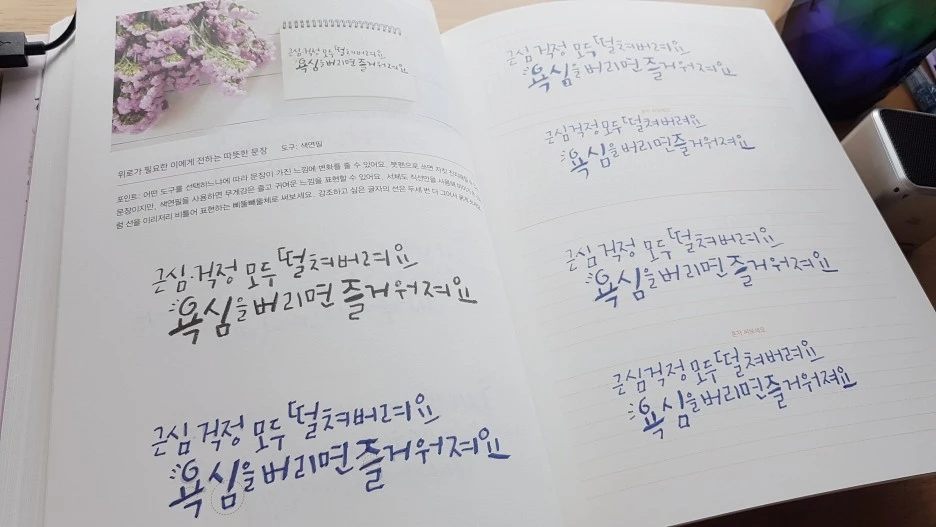 근심·걱정 모두 떨쳐버려요
욕심을 버리면 즐거워져요
위로가 필요한 이에게 전하는 따뜻한 문장 도구: 색연필
포인트: 어떤 도구를 선택하느냐에 따라 문장이 가진 느낌에 변화를 줄 수 있어요. 붓펜으로 쓰면 자칫
문장이지만, 색연필을 사용하면 무게감은 줄고 귀여운 느낌을 표현할 수 있어요. 서체도 직선만을 사용해
럼 선을 이리저리 비틀어 표현하는 삐뚤빼뚤체로 써보세요. 강조하고 싶은 글자의 선은 두세 번 더 그어서
근심·걱정 모두 떨쳐버려요
욕심을 버리면 즐거워져요
근심·걱정 모두 떨쳐버려요
욕심을 버리면 즐거워져요
근심·걱정 모두 떨쳐버려요
욕심을 버리면 즐거워져요
근심·걱정 모두 떨쳐버려요
욕심을 버리면 즐거워져요
근심·걱정 모두 떨쳐버려요
욕심을 버리면 즐거워져요
혼자 써보세요
근심·걱정 모두 떨쳐버려요
욕심을 버리면 즐거워져요